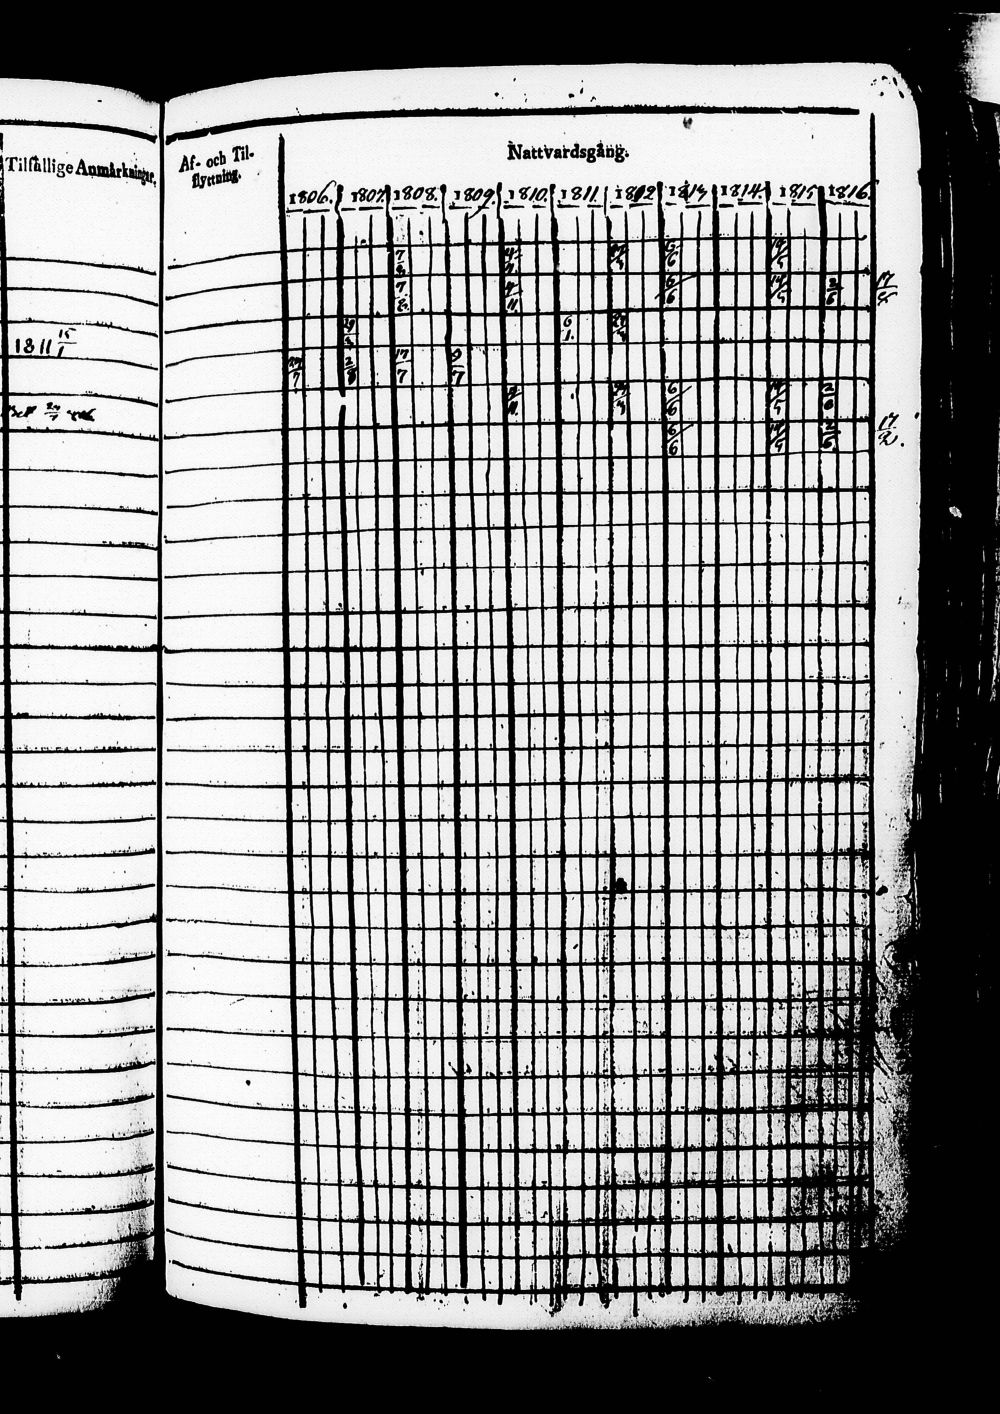 Tilfällige Anmärkningar.
Af- och Til-
flyttning.
Nattvardsgång.
1806. 1807. 1808. 1809. 1810. 1811. 1812 1813 1814. 1815 1816.
7/2 4/11 27/3 6/6 14/5
7/2 4/11 6/6 14/5 2/6 17/5
1811 15/1
6/1 27/3
27/7 2/8 17/7 9/7
4/11 27/3 6/6 14/5 2/6
6/6 14/5 2/6 17/2.